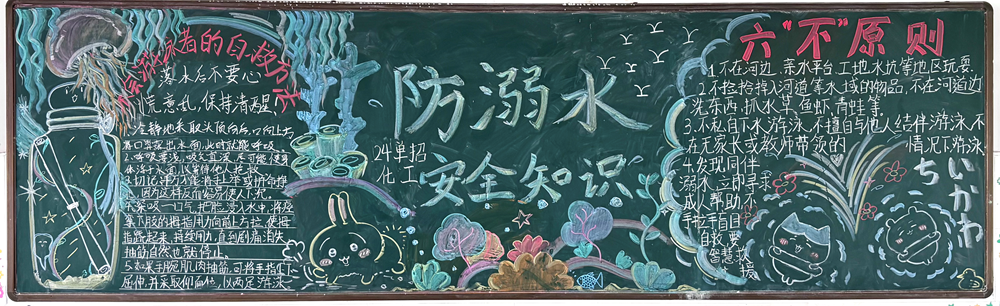 不会游泳者的自救方法
落水后不要心
慌意乱,保持清醒!
冷静地采取头顶向后,口向上方
将口鼻露出水面,此时就能呼吸
2.呼吸要浅,吸气宜深,尽可能使身
体浮于水面,以等待他人抢救
3.切记:千万不能将手上举或拼命挣
扎,因为这样反而容易使人下沉
吸一口气,把脸浸入水中,将痉
挛下肢的拇指用力向前上方拉,使拇
指翘起来,持续用力,直到剧痛消失
抽筋自然也就停止。
5.如果手腕肌肉抽筋,可将手指上下
屈伸,并采取仰面位,以两足游泳
防溺水
安全知识
24单招
化工
六“不”原则
1.不在河边、亲水平台、工地水坑等地区玩耍
2.不捡拾掉入河道等水域的物品,不在河道边
洗东西、抓水草、鱼虾、青蛙等
3.不私自下水游泳,不擅自与他人结伴游泳,不
在无家长或教师带领的情况下游泳
4.发现同伴
溺水,立即寻求
成人帮助,不
手拉手盲目
自救,要
智慧救援
ちいかわ